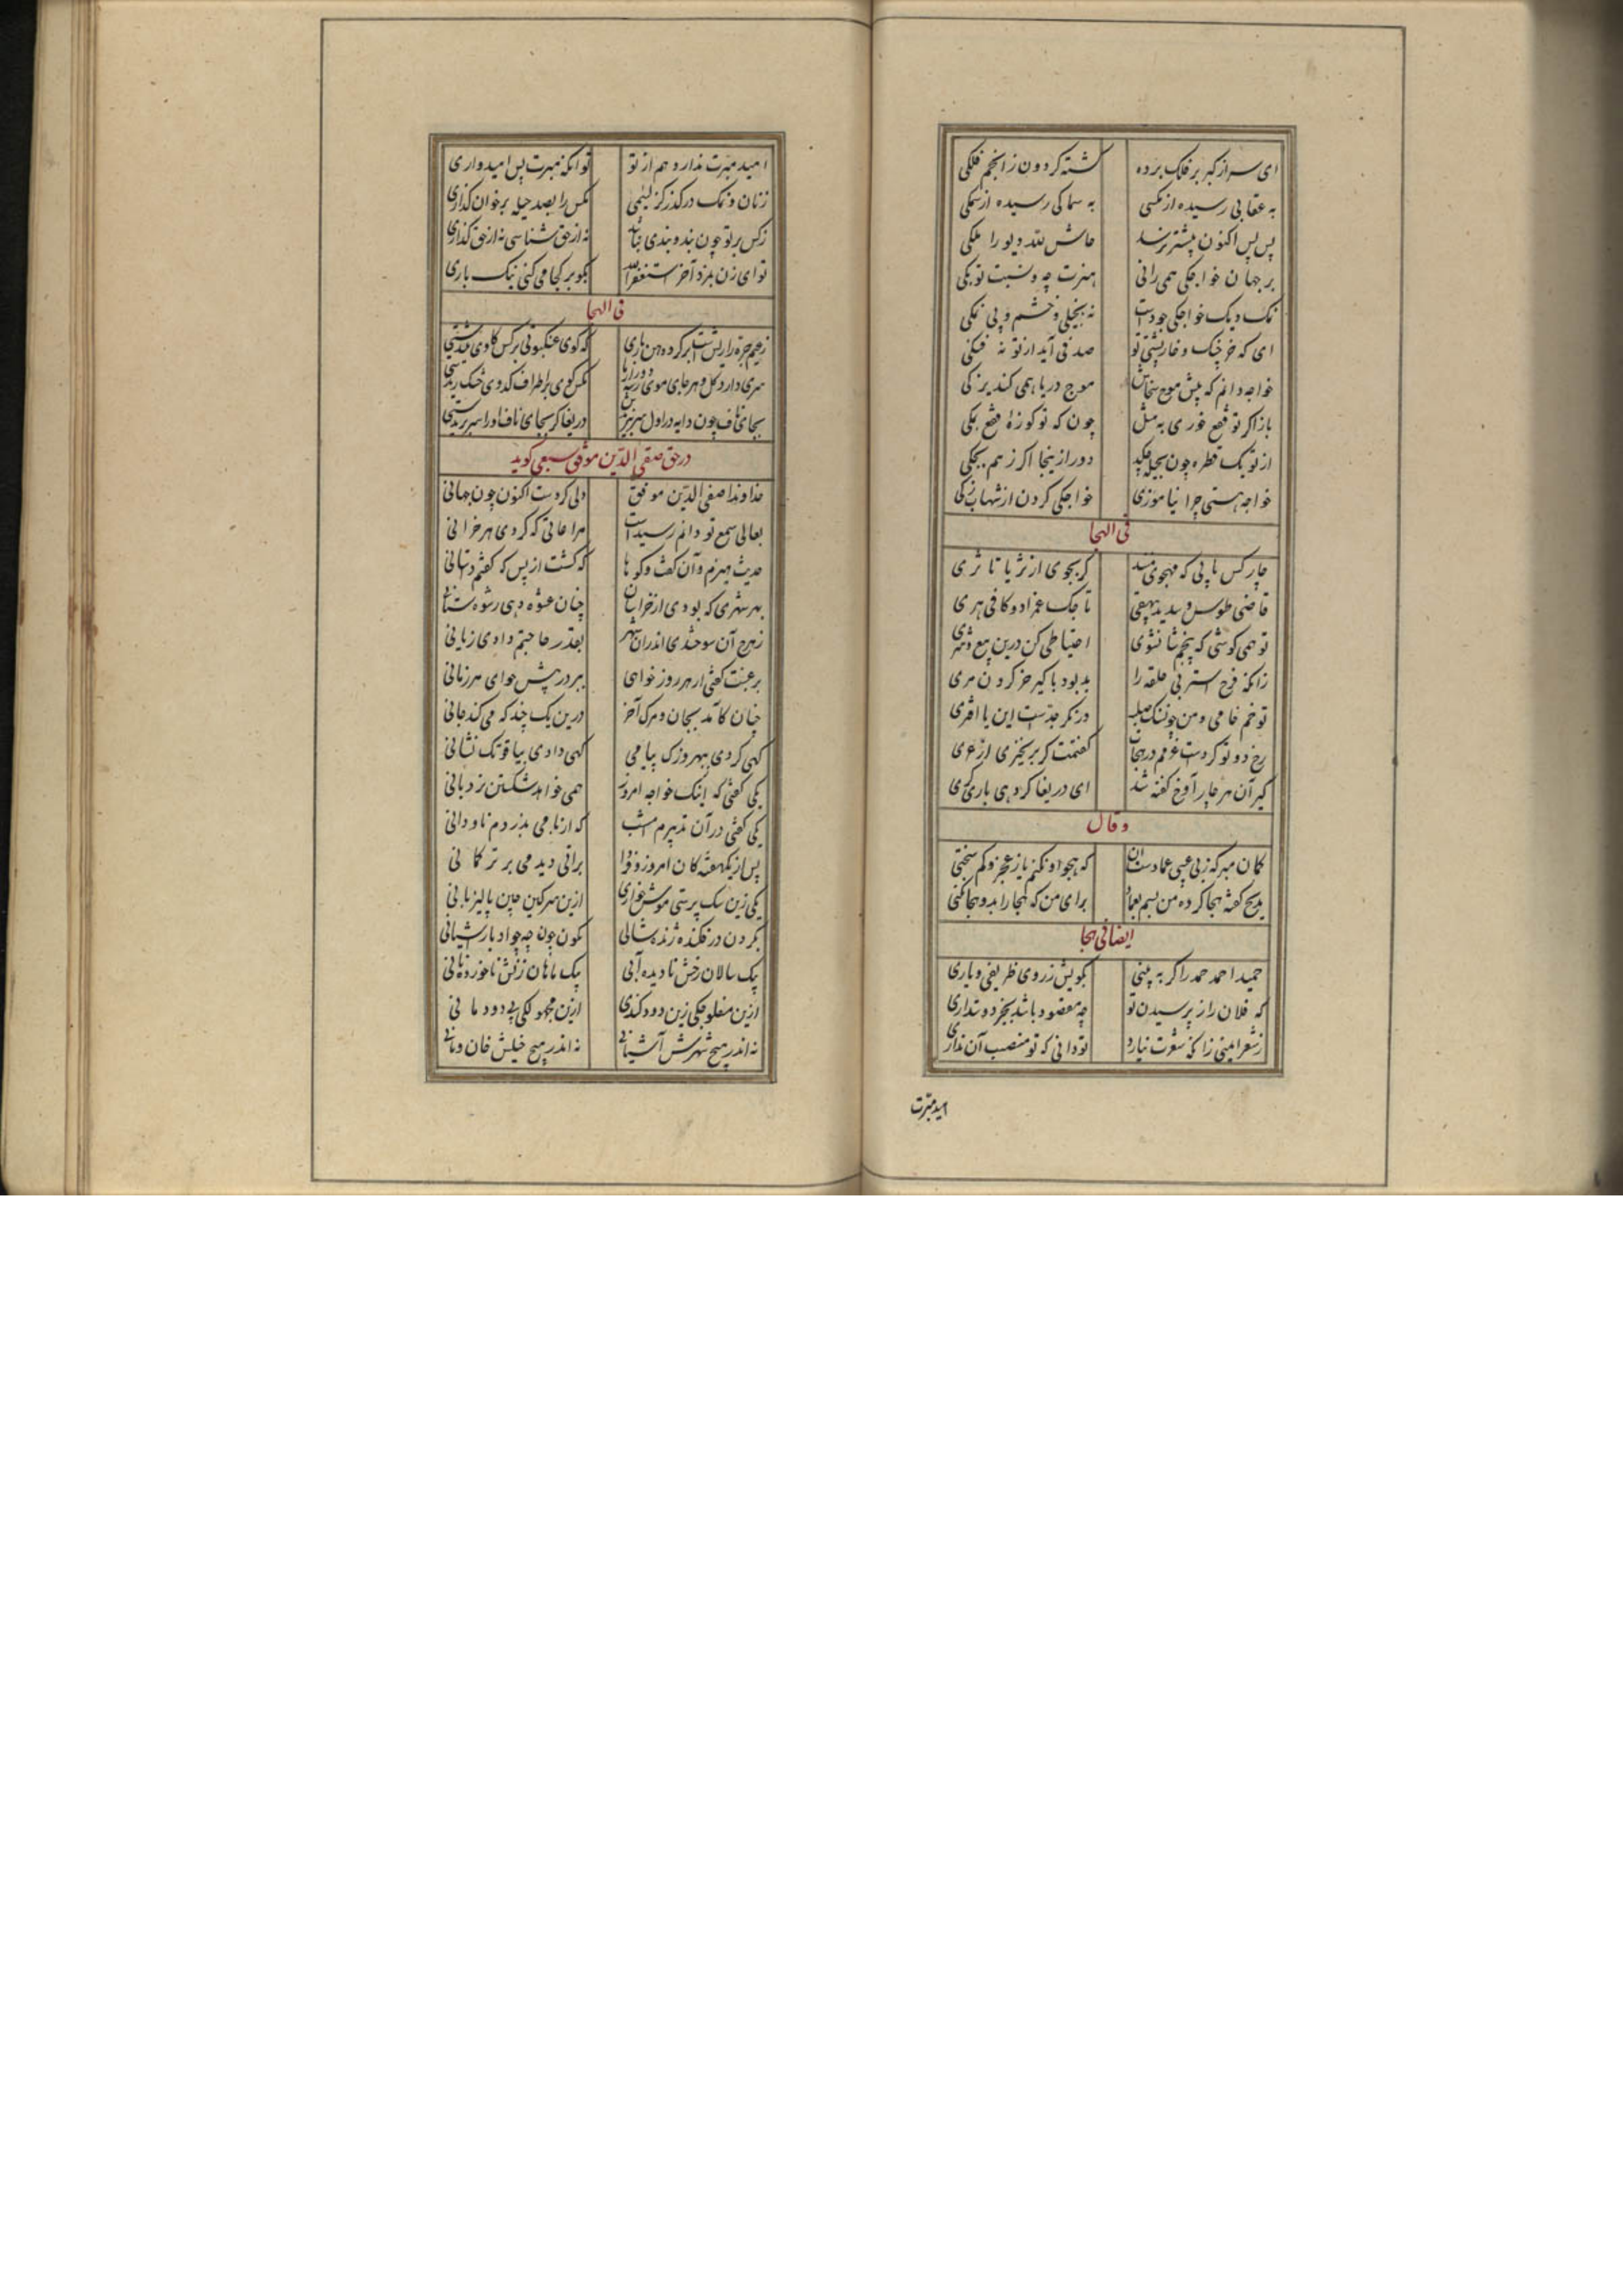 ای سر از کبر بر فلک برده گشته گردون ز انجم فلکی
به عقابی رسیده از مکسی به سماکی رسیده از سمکی
پس پس اکنون پیشتر برسد حاش لله دیو را ملکی
بر جهان خواجکی همی رانی هنرت چه و نسبت تو بکی
نمک دیک خواجکی جودست نه بخیلی و خشم و بی نمکی
ای که خرچنک و خارپشتی تو صدفی آید از تو نه
خواجه دانم که پیش موج موج دریا همی کند
باز اکر تو فقع خوری به مثل چون که تو کوزهٔ فقع بمکی
از تو یک قطره چون بحیله چکید دور از ینجا اکر ز هم بچکی
خواجه هستی چرا نیاموزی خواجکی کردن از شهاب زکی
فی الهجا
چار کس یابی که مهجوی منند کر بجوی از ثریا تا ثری
قاضی طوس و سدید بیهقی تاجک عمزاد و کافی هری
تو همی کوشی که پنجم شان شوی احتیاطی کن درین بیع و شری
زانکه فرخ استر بی حلقه را بد بود با کیر خر کردن مری
تو خم خامی و من در نکر جدست این یا
رخ دو تو کردست در هجات کفتمت کر بر نخیزی
کیر آن هر چار آوخ کفته شد ای دریغا کردهی باری کری
وقال
کمان مبر که ز بی عیبی عمادست آن که هجو او نکنم یا ز عجز و کم سخنی
مدیح کفته هجا کرده من بسم برای من که هجا را بدو هجا کنی
ایضا فی هجا
حمید احمد حمد را کر به بینی بکویش ز روی ظریفی و یاری
که فلان را ز پرسیدن تو چه مقصود باشد بجز دوستداری
ز شعر ایمنی زانکه شعرت نیارد تو دانی که تو منصب آن نداری
امید مبرت
امید مبرت ندارد هم از تو تو آنکه مبرت پس امیدواری
ز نان و نمک در کذر کز لئیمی مکس را بصد حیله بر خوان کذاری
ز کس بر تو چون بند و بندی نباشد نه از حق شناسی نه از حق کذاری
تو ای زن بمزد آخر استغفرالله بکو بر کجا می کنی نیک باری
فی الهجا
که کوی عنکبوتی بر کس
سری دارد کل و هر جای موی رسته مکس کوی بر اطراف کدوی خشک
بجای ناف چون دایه در اول دریغا کر بجای ناف او را سر
در حق صفی الدین موفق سبعی کوید
خداوندا صفی الدین موفق دلی کردست اکنون چون جهانی
بعالی سمع تو دانم رسیدست مراعاتی که کردی هر خزانی
حدیث هیزم و آن کفت و کوها که کشت از پس که کفتم داستانی
بهر شهری که بودی از خراسان چنان عشوه دهی رشوه ستانی
ز هرچ آن سوختندی اندران شهر بقدر حاجتم دادی زیانی
بر غبت کفتی ار هر روز خواهی ببر در پیش خوای هر زمانی
چنان کآمد بجان و مرک آخر درین یک چند که می کند جانی
کهی کردی ببهروزک پیامی کهی دادی بیاقوتک نشانی
یکی کفتی که اینک خواجه امروز همی خواهد شکستن نردبانی
یکی کفتی در آن تدبیرم امشب که از بامی بدزدم ناودانی
پس از یکهفته کان امروز و فردا براتی دید می بر ترکمانی
یکی زین سک پرستی موش خواری ازین سرکین چین پالیزبانی
بکردن در فکنده ژنده شالی بکون چون چه چواد
بیک سالان رخش نادیده آبی بیک ماهان زنش ناخورده نانی
ازین مفلوجکی زین دود کندی ازین مجهولکی بی دودمانی
نه اندر هیچ شهرش آشیانی نه اندر هیچ خیلش خان و مانی